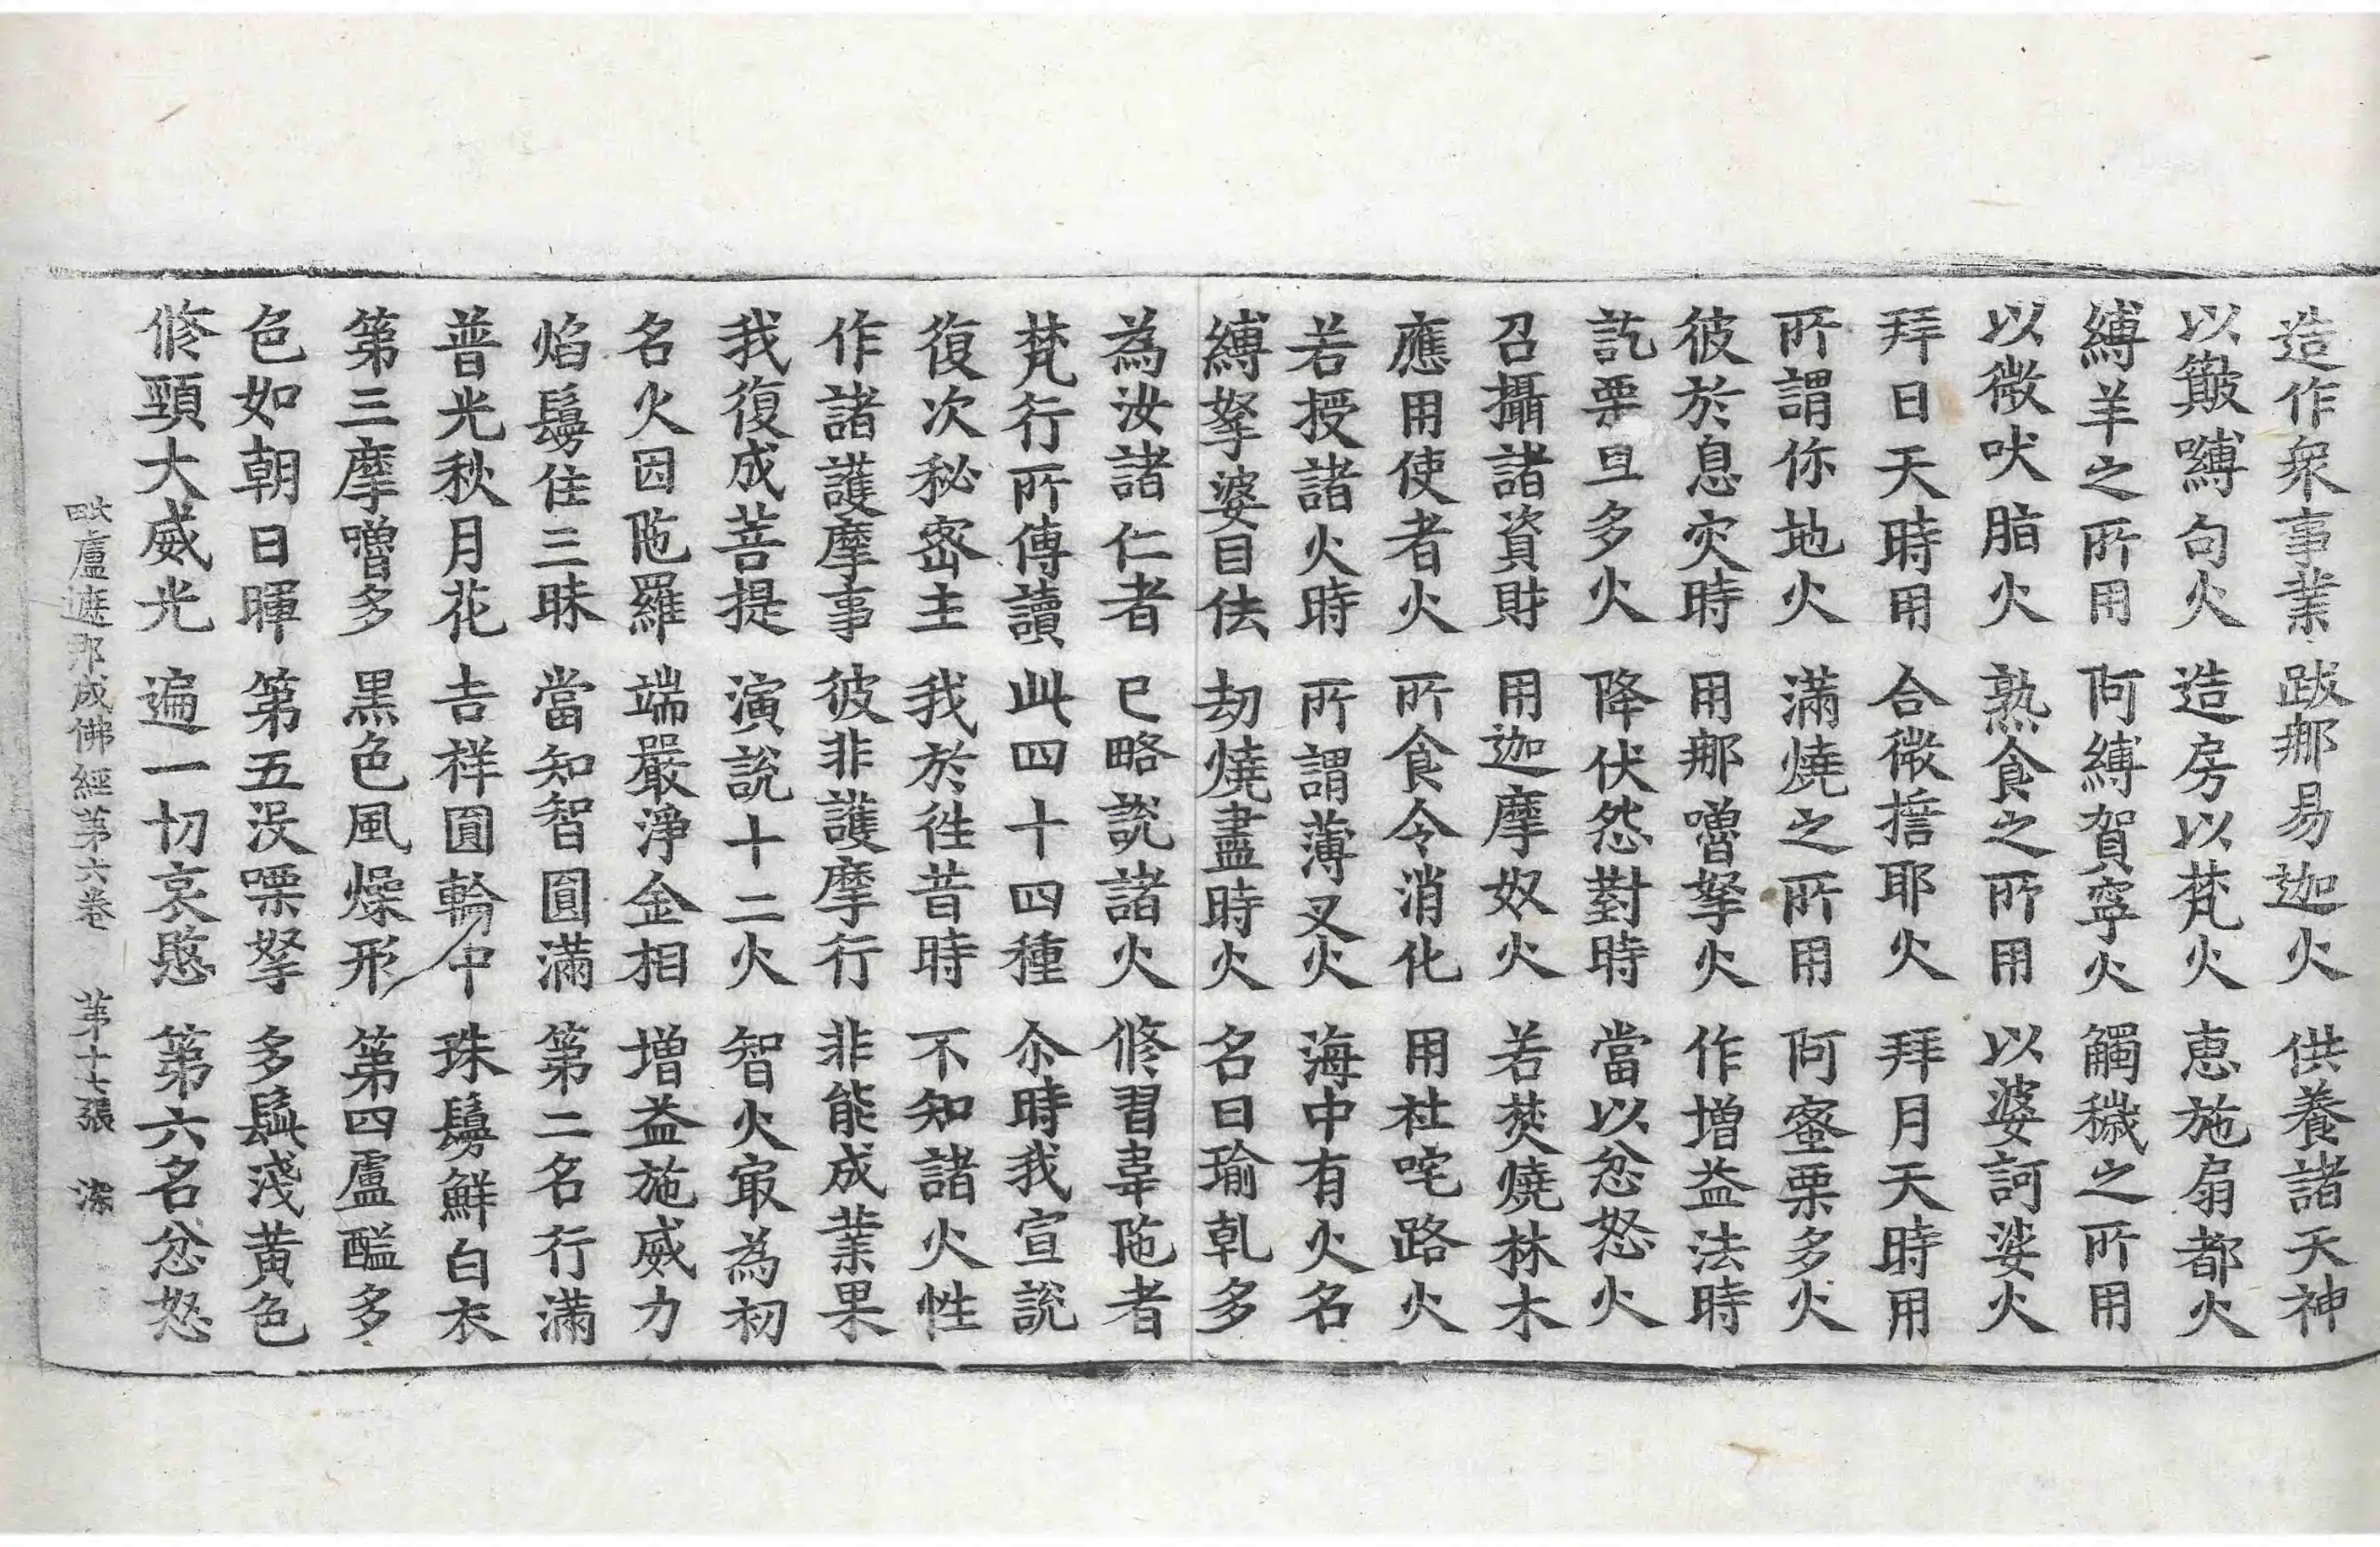 造作衆事業 跋那易迦火 供養諸天神
以簸嚩句火 造房以梵火 惠施扇都火
縛羊之所用 阿縛賀寧火 觸穢之所用
以微吠脂火 熟食之所用 以婆訶娑火
拜日天時用 合微誓耶火 拜月天時用
所謂你地火 滿燒之所用 阿蜜栗多火
彼於息灾時 用那嚕拏火 作增益法時
訖栗旦多火 降伏怨對時 當以忿怒火
召攝諸資財 用迦摩奴火 若焚燒林木
應用使者火 所食令消化 用社咤路火
若授諸火時 所謂薄叉火 海中有火名
縛拏婆目佉 劫燒盡時火 名曰瑜乹多
為汝諸仁者 已略說諸火 修習韋陁者
梵行所傳讀 此四十四種 尒時我宣說
復次秘密主 我於徃昔時 不知諸火性
作諸護摩事 彼非護摩行 非能成業果
我復成菩提 演說十二火 智火㝡為初
名火因陁羅 端嚴淨金相 增益施威力
焰鬘住三昧 當知智圓滿 第二名行滿
普光秋月花 吉祥圓輪中 珠鬘鮮白衣
第三摩嚕多 黑色風燥形 第四盧醯多
色如朝日暉 第五沒㗚拏 多髭淺黃色
修頸大威光 遍一切哀愍 第六名忿怒
毗盧遮那成佛經第六卷 第十七張 潔